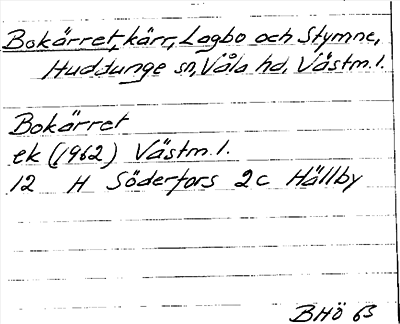 Bokärret, kärr, Lagbo och Stymne,
Huddunge sn, Våla hd, Västm. l.
Bokärret
ek (1962) Västm. l.
12 H Söderfors 2c Hällby
BHÖ 63